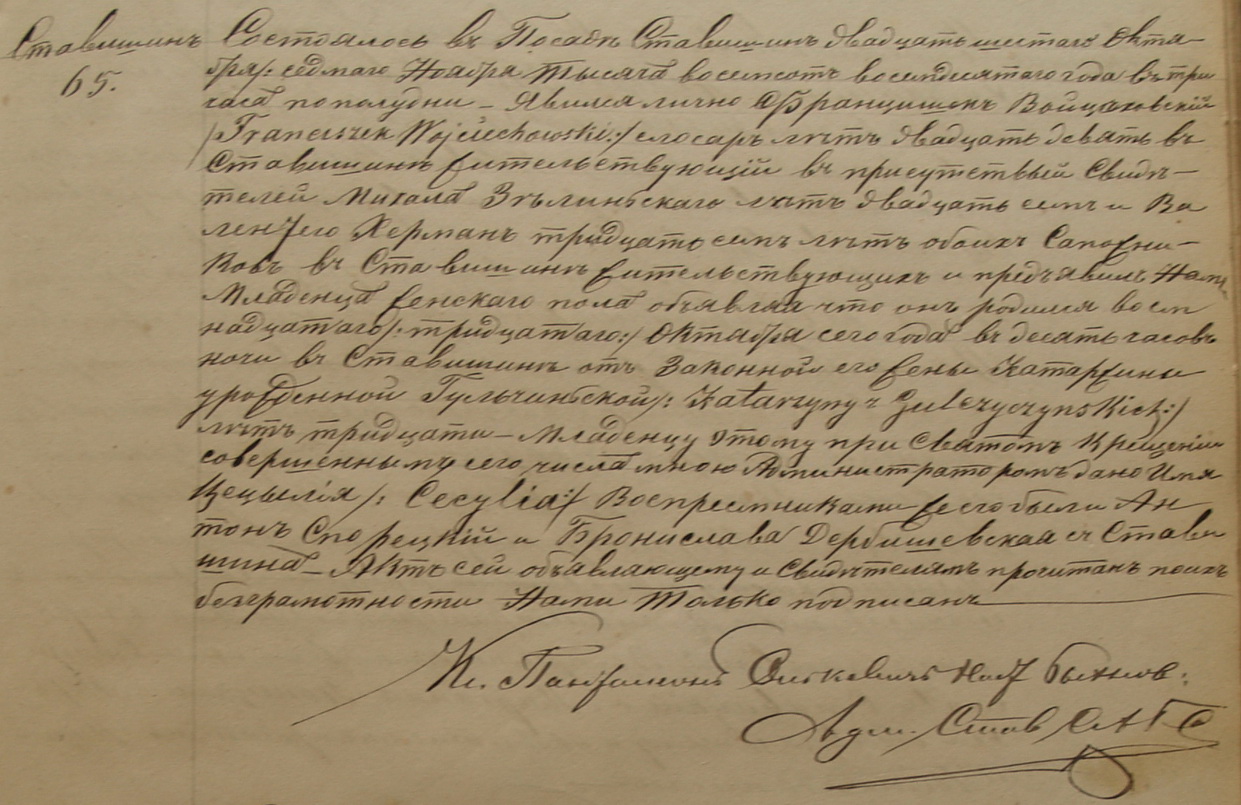 Ставишинъ
65.
Состоялось въ Посадѣ Ставишинъ двадцать шестаго Октя-
бря /: седмаго Ноября тысяча восемсотъ восемдесятаго года въ три
часа пополудни – Явился лично Францишекъ Войцѣховскій
/ Franciszek Wojciechowski :/ слосарь лѣтъ двадцать девять въ
Ставишинѣ жительствующій въ присутствіи Свидѣ-
телей Михала Зѣлиньскаго лѣтъ двадцать семь и Ва
лентего Херманъ тридцать семь лѣтъ обоихъ Сапожни-
ковъ въ Ставишинѣ жительствующихъ и предъявилъ Намъ
Младенца женскаго пола объявляя что онъ родился восем
надцатаго /: тридцатаго :/ Октября сего года въ десять часовъ
ночи въ Ставишинѣ отъ Законной его жены Катаржины
урожденной Гульчиньской /: Katarzyny z :/
лѣтъ тридцати – Младенцу этому при Святомъ Крещеніи
совершенномъ сего числа мною Администраторомъ дано Имя
Цецылія /: Cecylia :/ Воспреемниками же его были Ан
тонъ Спорецкій и Бронислава Дербишевская съ Стави
шина – Актъ сей объявляющему и Свидѣтелямъ прочитанъ по ихъ
безграмотности Нами только подписанъ
Кс.
Адм. Став